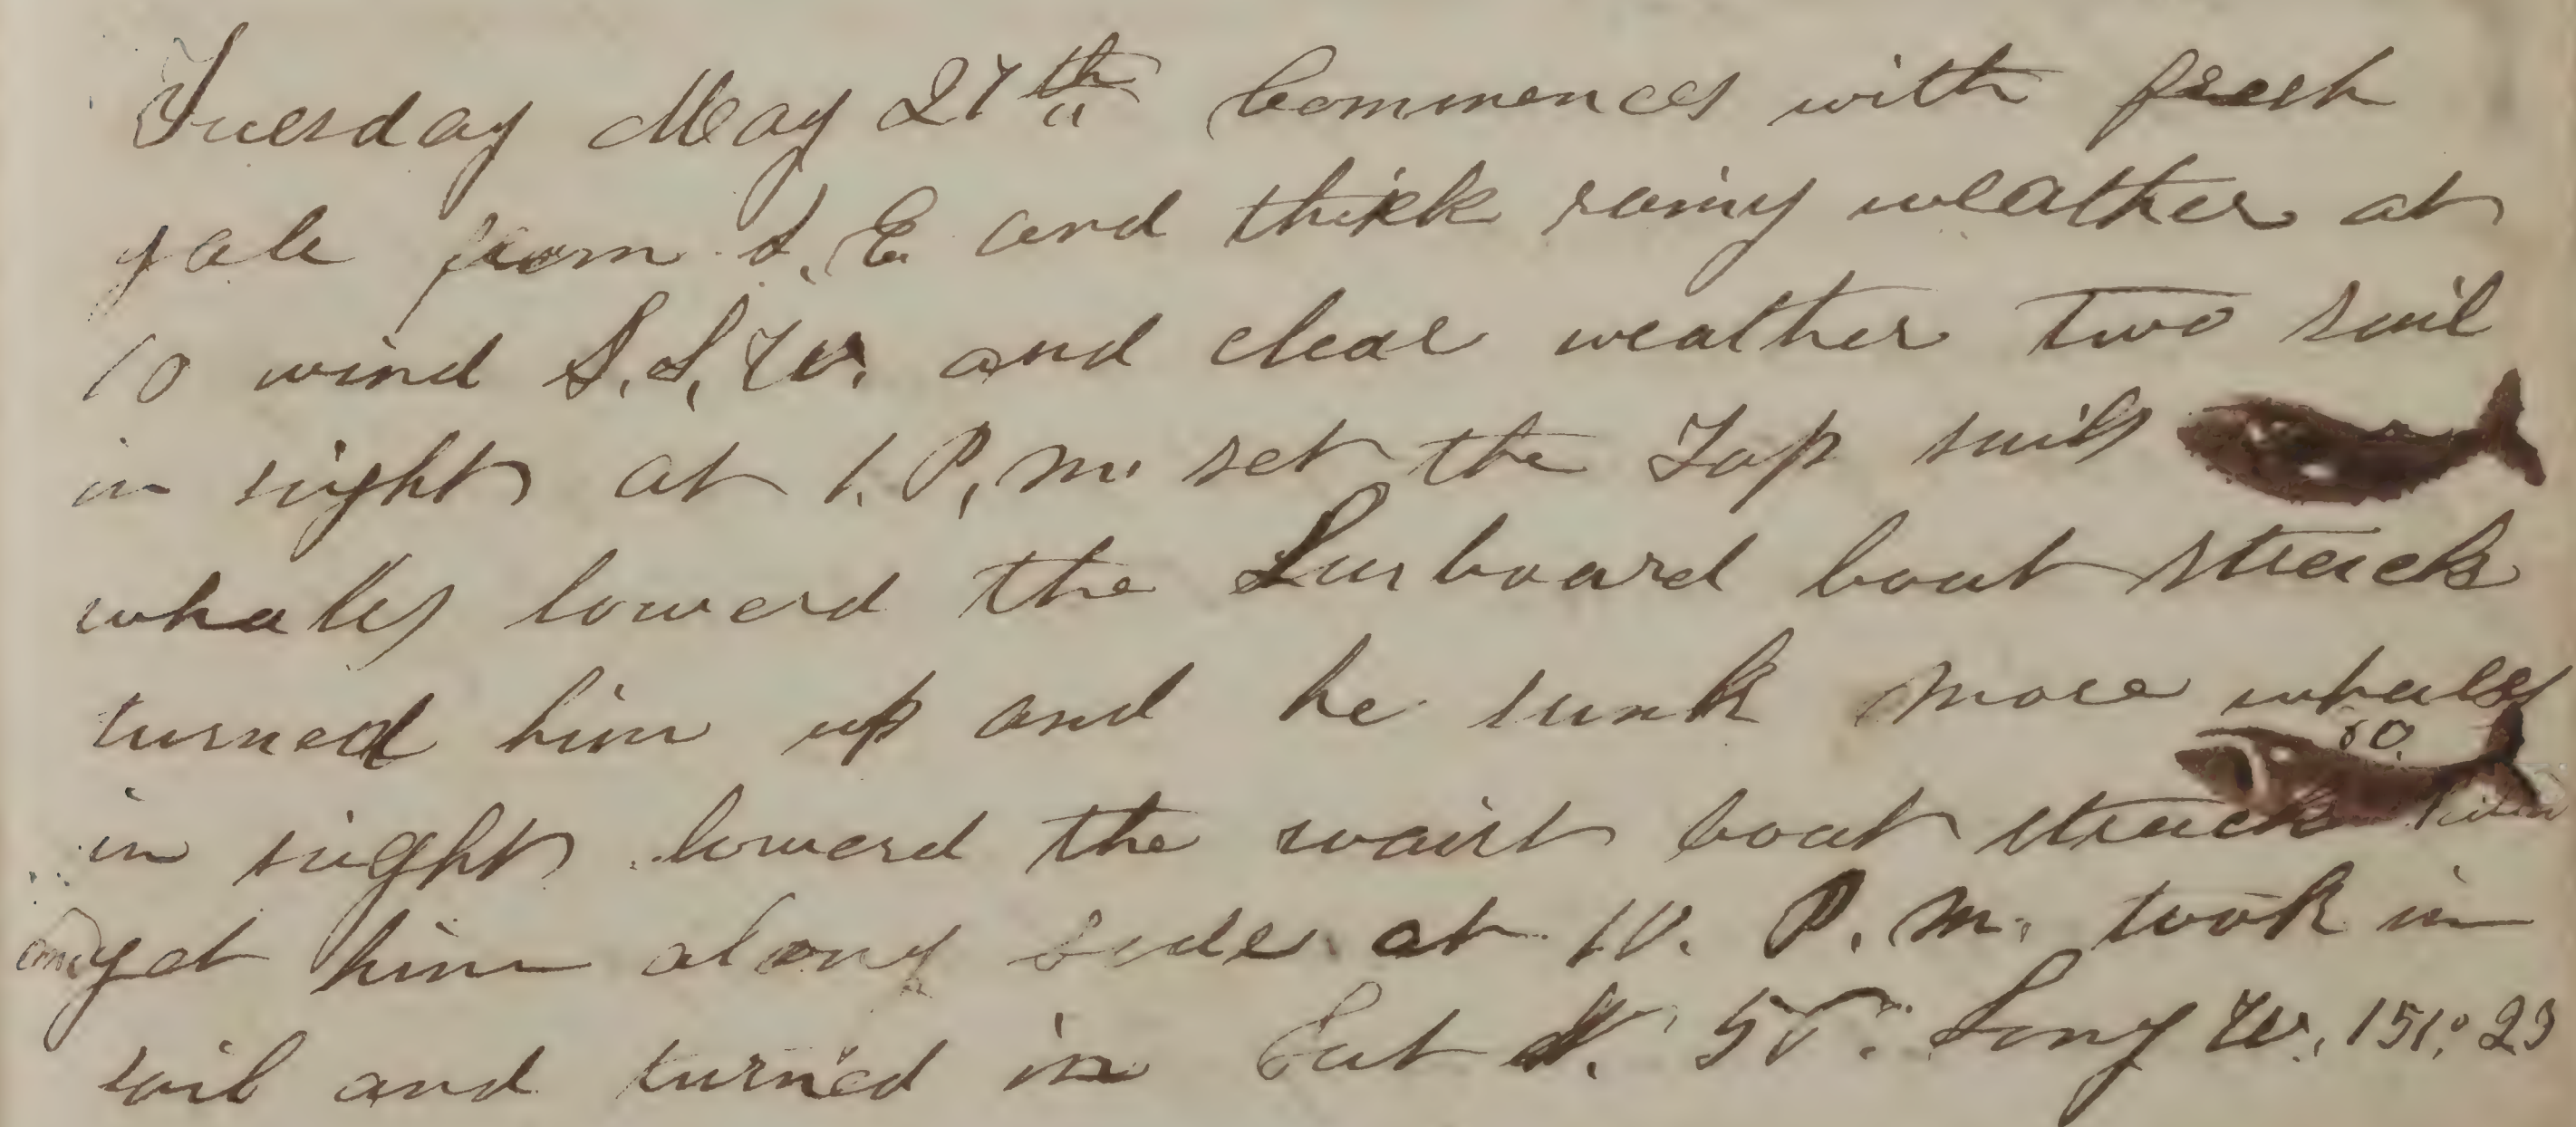 Tuesday May 27th Commences with fresh
gale from S. E. and thick rainy weather at
10 wind S. S. W. and clear weather two sail
in sight at 1. P. m. set the Top sails
whales lowerd the Larboard boat struck
turned him up and he sunk more whales
80.
in sight lowerd the waist boat struck
and got him along side at 10. P. m. took in
sail and turned in Lat N. Long W. 151° 23